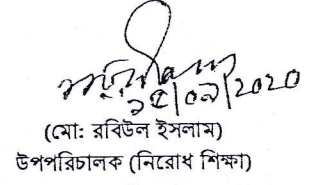 ১৫/০৯/২০২০
(মো: রবিউল ইসলাম)
উপপরিচালক (নিরোধ শিক্ষা)